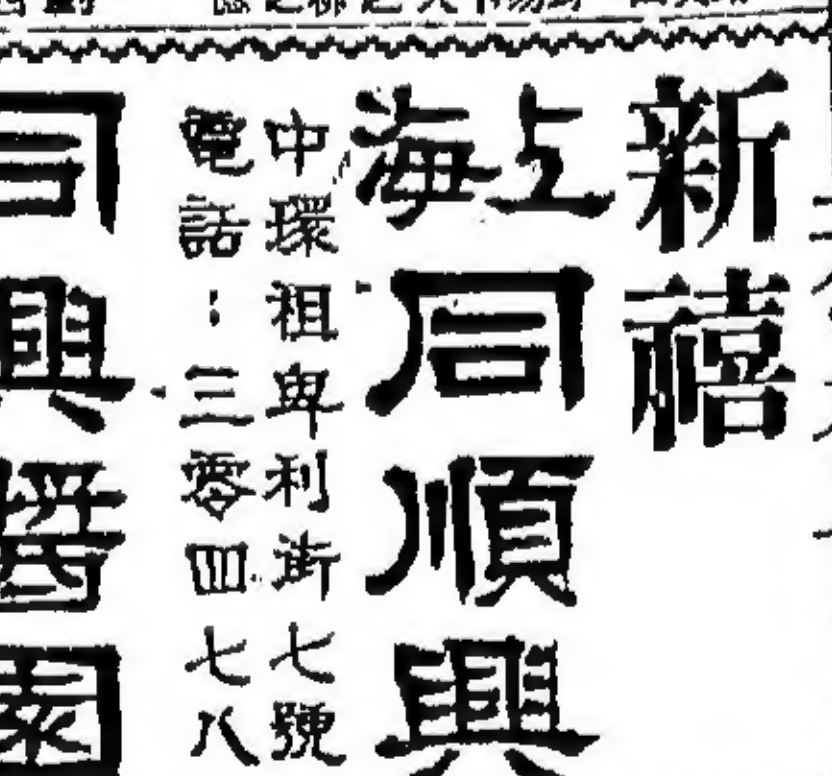 新禧
上海
同順興
中環祖卑利街七號
電話：三零四七八
同興醬園